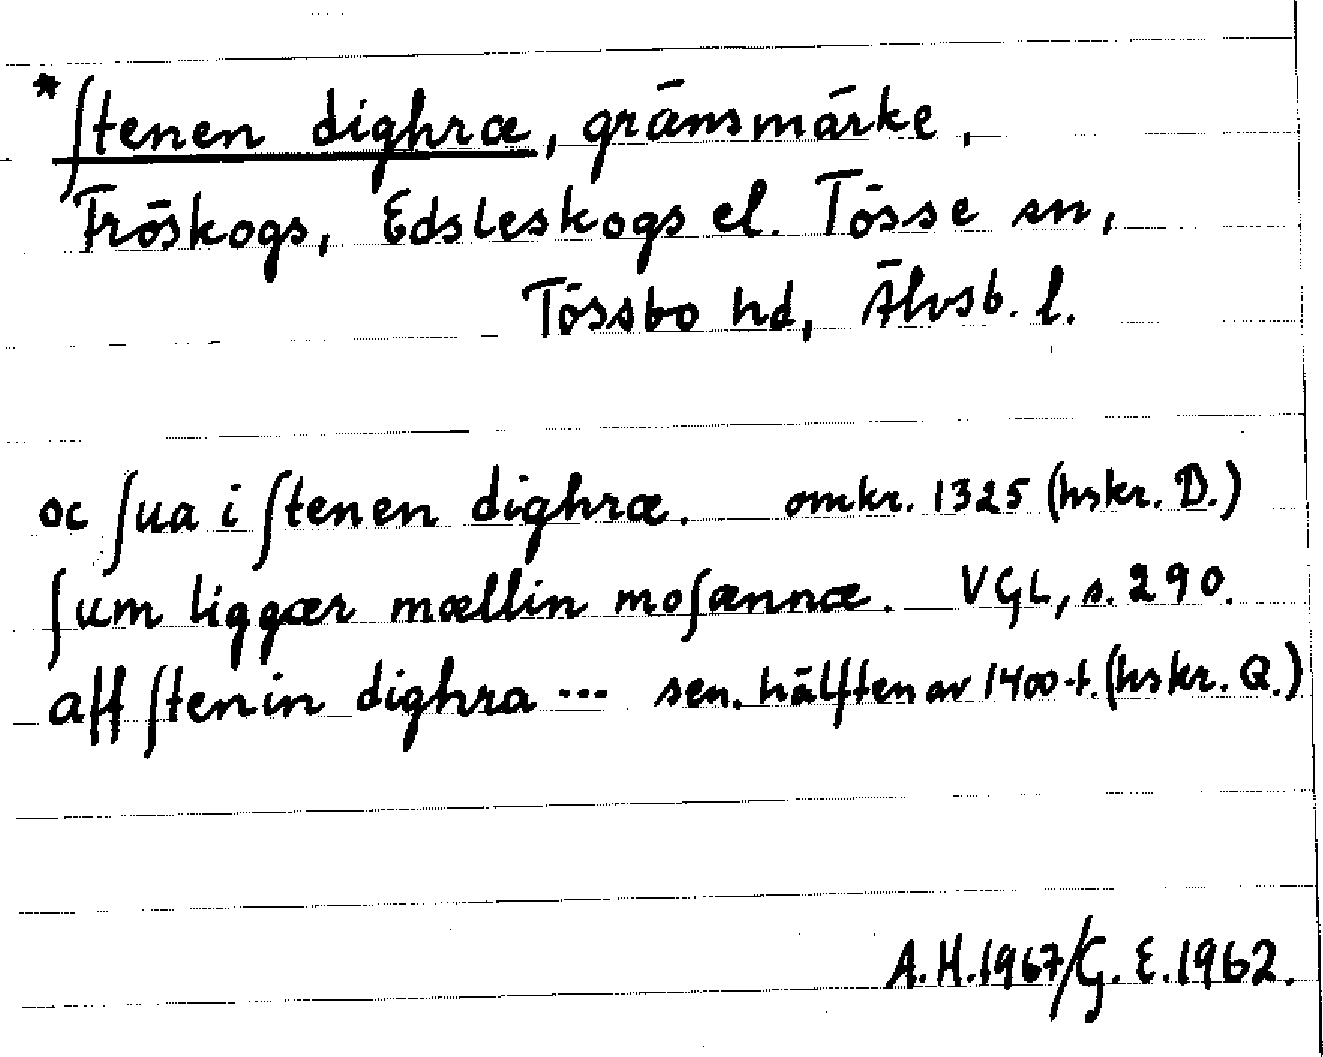 *ſtenen dighræ, gränsmärke,
Fröskogs, Edsleskogs el. Tösse sn,
Tössbo hd, Älvsb. l.
oc ſua i ſtenen dighræ. omkr. 1325 (hskr. D.)
ſum liggær mællin moſænnæ. VGL, s. 290.
aff ſtenin dighra ... sen. hälften av 1400-t. (hskr. Q.)
A.H. 1967/G.E. 1962.